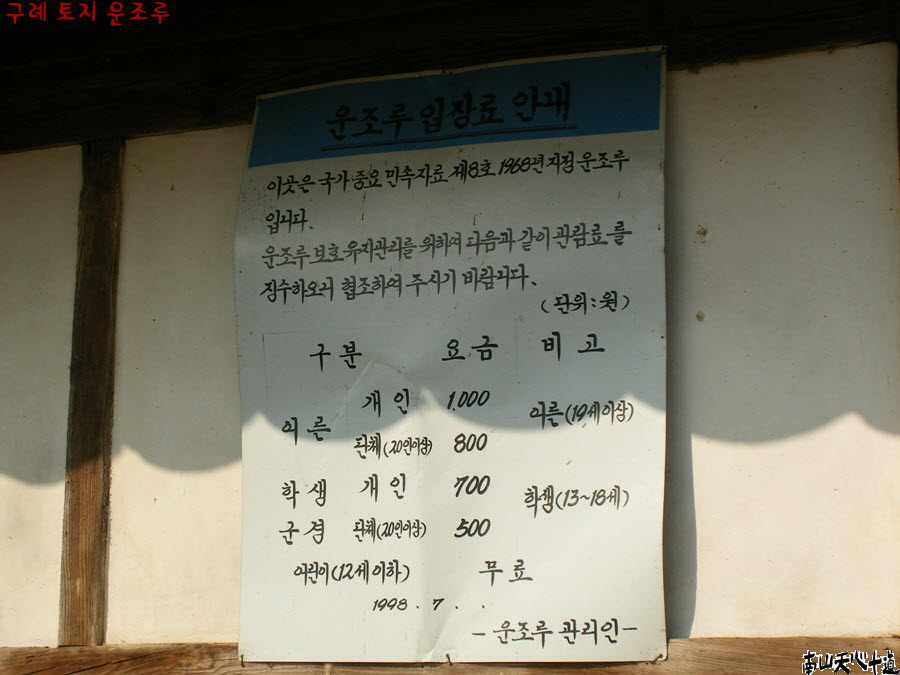 구례 토지 운조루
운조루 입장료 안내
이곳은 국가 중요 민속자료 제8호 1968년 지정 운조루
입니다.
운조루 보호 유지관리를 위하여 다음과 같이 관람료를
징수하오니 협조하여 주시기 바랍니다.
(단위:원)
구분 요금 비고
어른 개인 1,000 어른(19세이상)
단체(20인이상) 800
학생 개인 700 학생(13~18세)
군경 단체(20인이상) 500
어린이(12세이하) 무료
1998. 7. .
-운조루 관리인-
南山天心十道